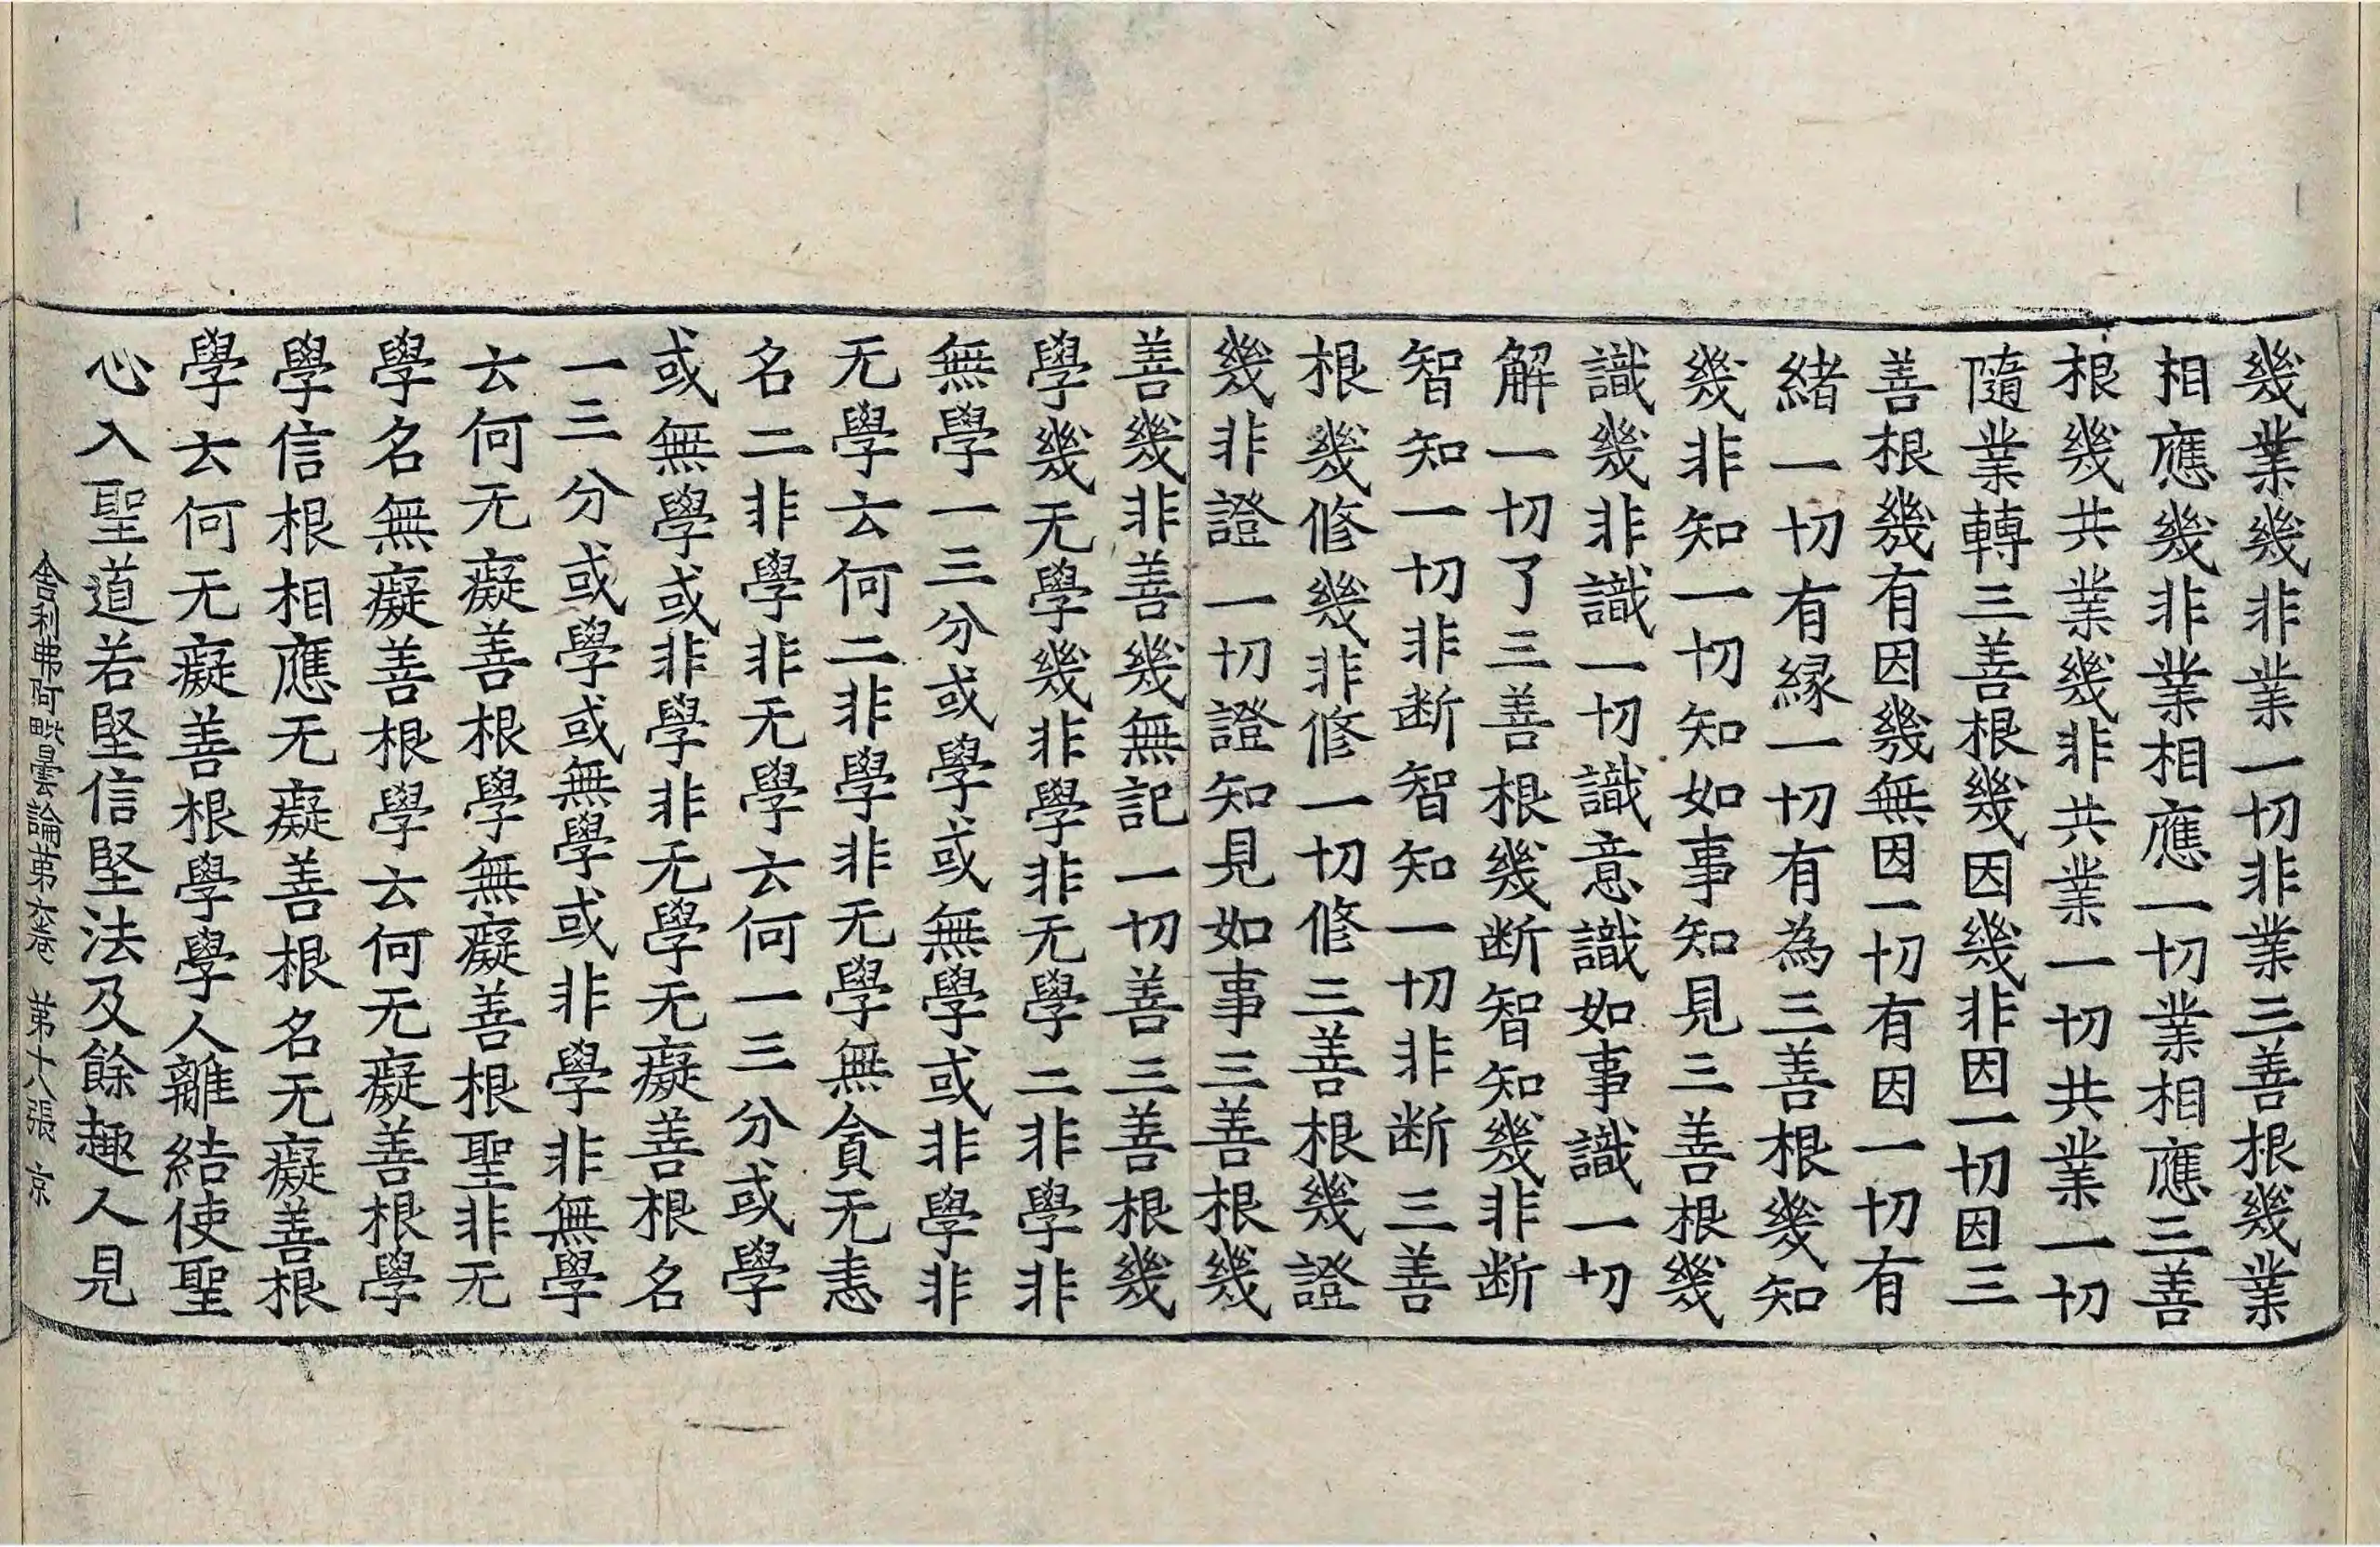 幾業幾非業一切非業三善根幾業
相應幾非業相應一切業相應三善
根幾共業幾非共業一切共業一切
隨業轉三善根幾因幾非因一切因三
善根幾有因幾無因一切有因一切有
緒一切有緣一切有為三善根幾知
幾非知一切知如事知見三善根幾
識幾非識一切識意識如事識一切
解一切了三善根幾断智知幾非断
智知一切非断智知一切非断三善
根幾修幾非修一切修三善根幾證
幾非證一切證知見如事三善根幾
善幾非善幾無記一切善三善根幾
學幾无學幾非學非无學二非學非
無學一三分或學或無學或非學非
无學云何二非學非无學無貪无恚
名二非學非无學云何一三分或學
或無學或非學非无學无癡善根名
一三分或學或無學或非學非無學
云何无癡善根學無癡善根聖非无
學名無癡善根學云何无癡善根學
學信根相應无癡善根名无癡善根
學云何无癡善根學學人離結使聖
心入聖道若堅信堅法及餘趣人見
舍利弗阿毗曇論第六卷 第十八張 京